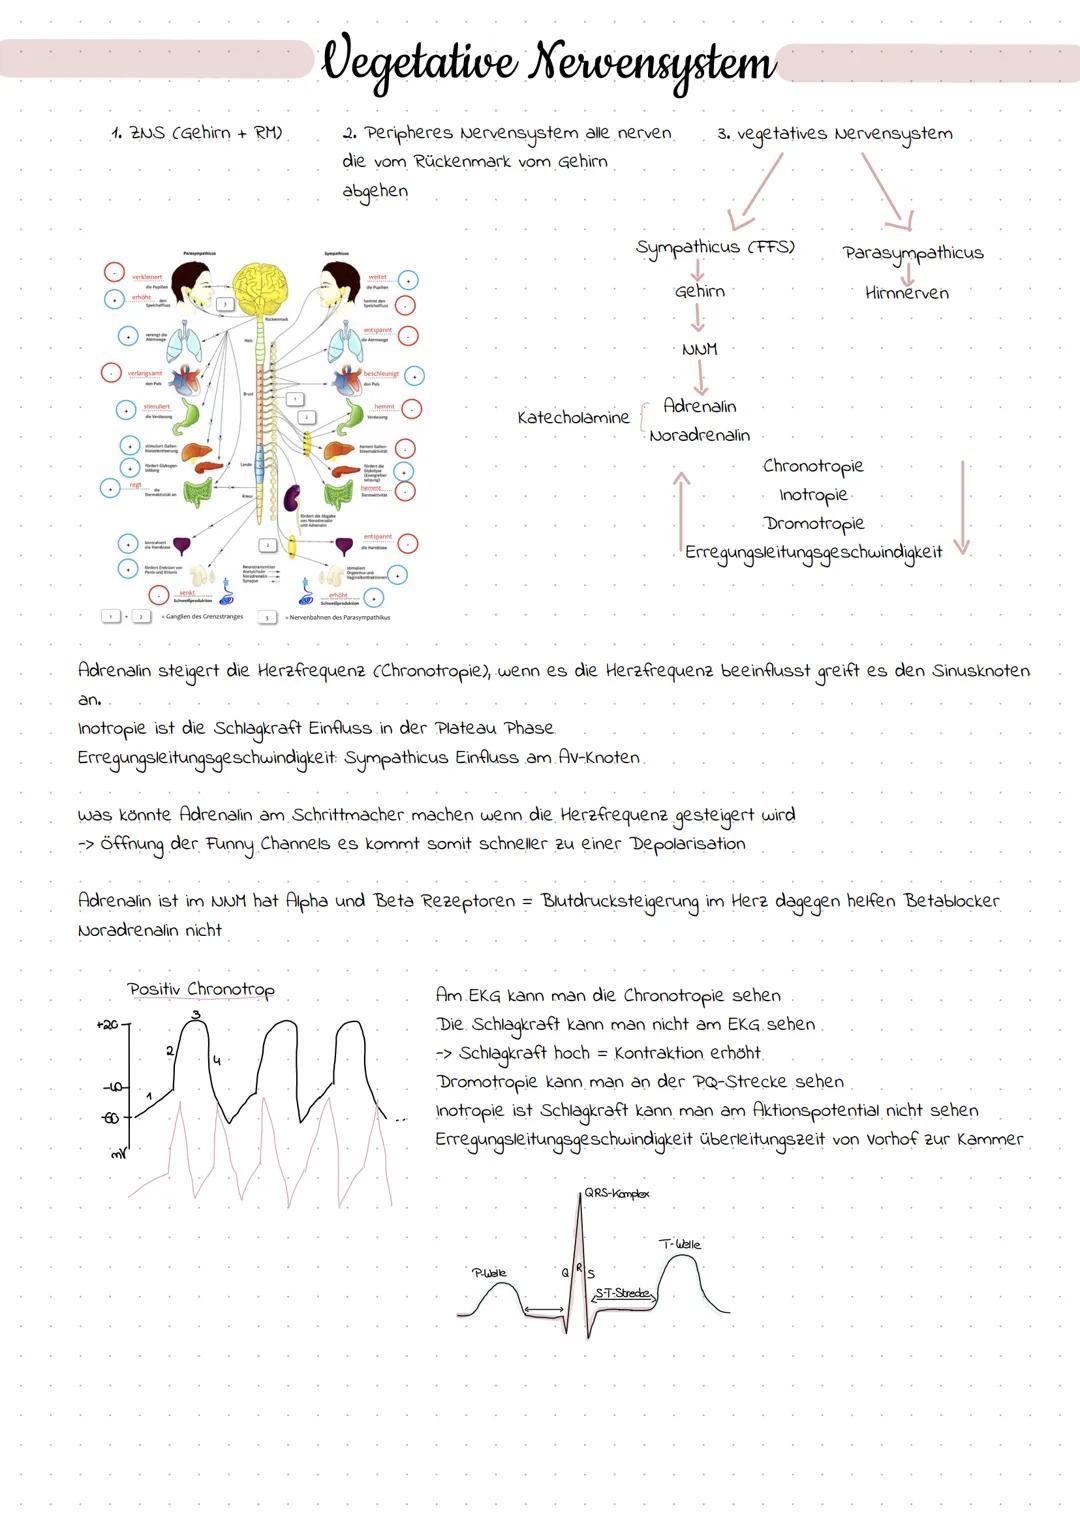 Vegetative Nervensystem
1. ZNS (Gehirn + RM)
2. Peripheres Nervensystem alle nerven
die vom Rückenmark vom Gehirn
abgehen
3. vegetatives Nervensystem
Sympathicus (FFS)
Parasympathicus
Gehirn
Hirnnerven
NNM
Katecholamine
Adrenalin
Noradrenalin
Chronotropie
Inotropie
Dromotropie
Erregungsleitungsgeschwindigkeit
Parasympathicus
Sympathicus
verkleinert
die Pupillen
erhöht den
Speichelfluss
verengt die
Atemwege
verlangsamt
den Puls
stimuliert
die Verdauung
stimuliert Gallen-
fördert Glykogen-
bildung
regt die
Darmaktivität an
kontrahiert
die Harnblase
fördert Erektion von
Penis und Klitoris
senkt
Schweißproduktion
weitet
die Pupillen
hemmt den
Speichelfluss
entspannt
die Atemwege
beschleunigt
den Puls
hemmt
Verdauung
hemmt Gallen-
fördert die
hemmt
Darmaktivität
fördert die Abgabe
von Noradrenalin
und Adrenalin
entspannt
die Harnblase
stimuliert
Orgasmus und
Vaginalkontraktionen
erhöht
Schweißproduktion
Rückenmark
Hals
Brust
Lende
Kreuz
Neurotransmitter
Acetylcholin
Noradrenalin
Synapse
1 + 2 = Ganglien des Grenzstranges 3 = Nervenbahnen des Parasympathikus
Adrenalin steigert die Herzfrequenz (Chronotropie), wenn es die Herzfrequenz beeinflusst greift es den Sinusknoten
an.
Inotropie ist die Schlagkraft Einfluss in der Plateau Phase
Erregungsleitungsgeschwindigkeit: Sympathicus Einfluss am AV-Knoten
Was könnte Adrenalin am Schrittmacher machen wenn die Herzfrequenz gesteigert wird
-> Öffnung der Funny Channels es kommt somit schneller zu einer Depolarisation
Adrenalin ist im NNM hat Alpha und Beta Rezeptoren = Blutdrucksteigerung im Herz dagegen helfen Betablocker
Noradrenalin nicht
Positiv Chronotrop
+20
-40
-60
mV
1
2
3
4
Am EKG kann man die Chronotropie sehen
Die Schlagkraft kann man nicht am EKG sehen
-> Schlagkraft hoch = Kontraktion erhöht
Dromotropie kann man an der PQ-Strecke sehen
Inotropie ist Schlagkraft kann man am Aktionspotential nicht sehen
Erregungsleitungsgeschwindigkeit überleitungszeit von Vorhof zur Kammer
QRS-Komplex
T-Welle
P-Welle
Q R S
S-T-Strecke